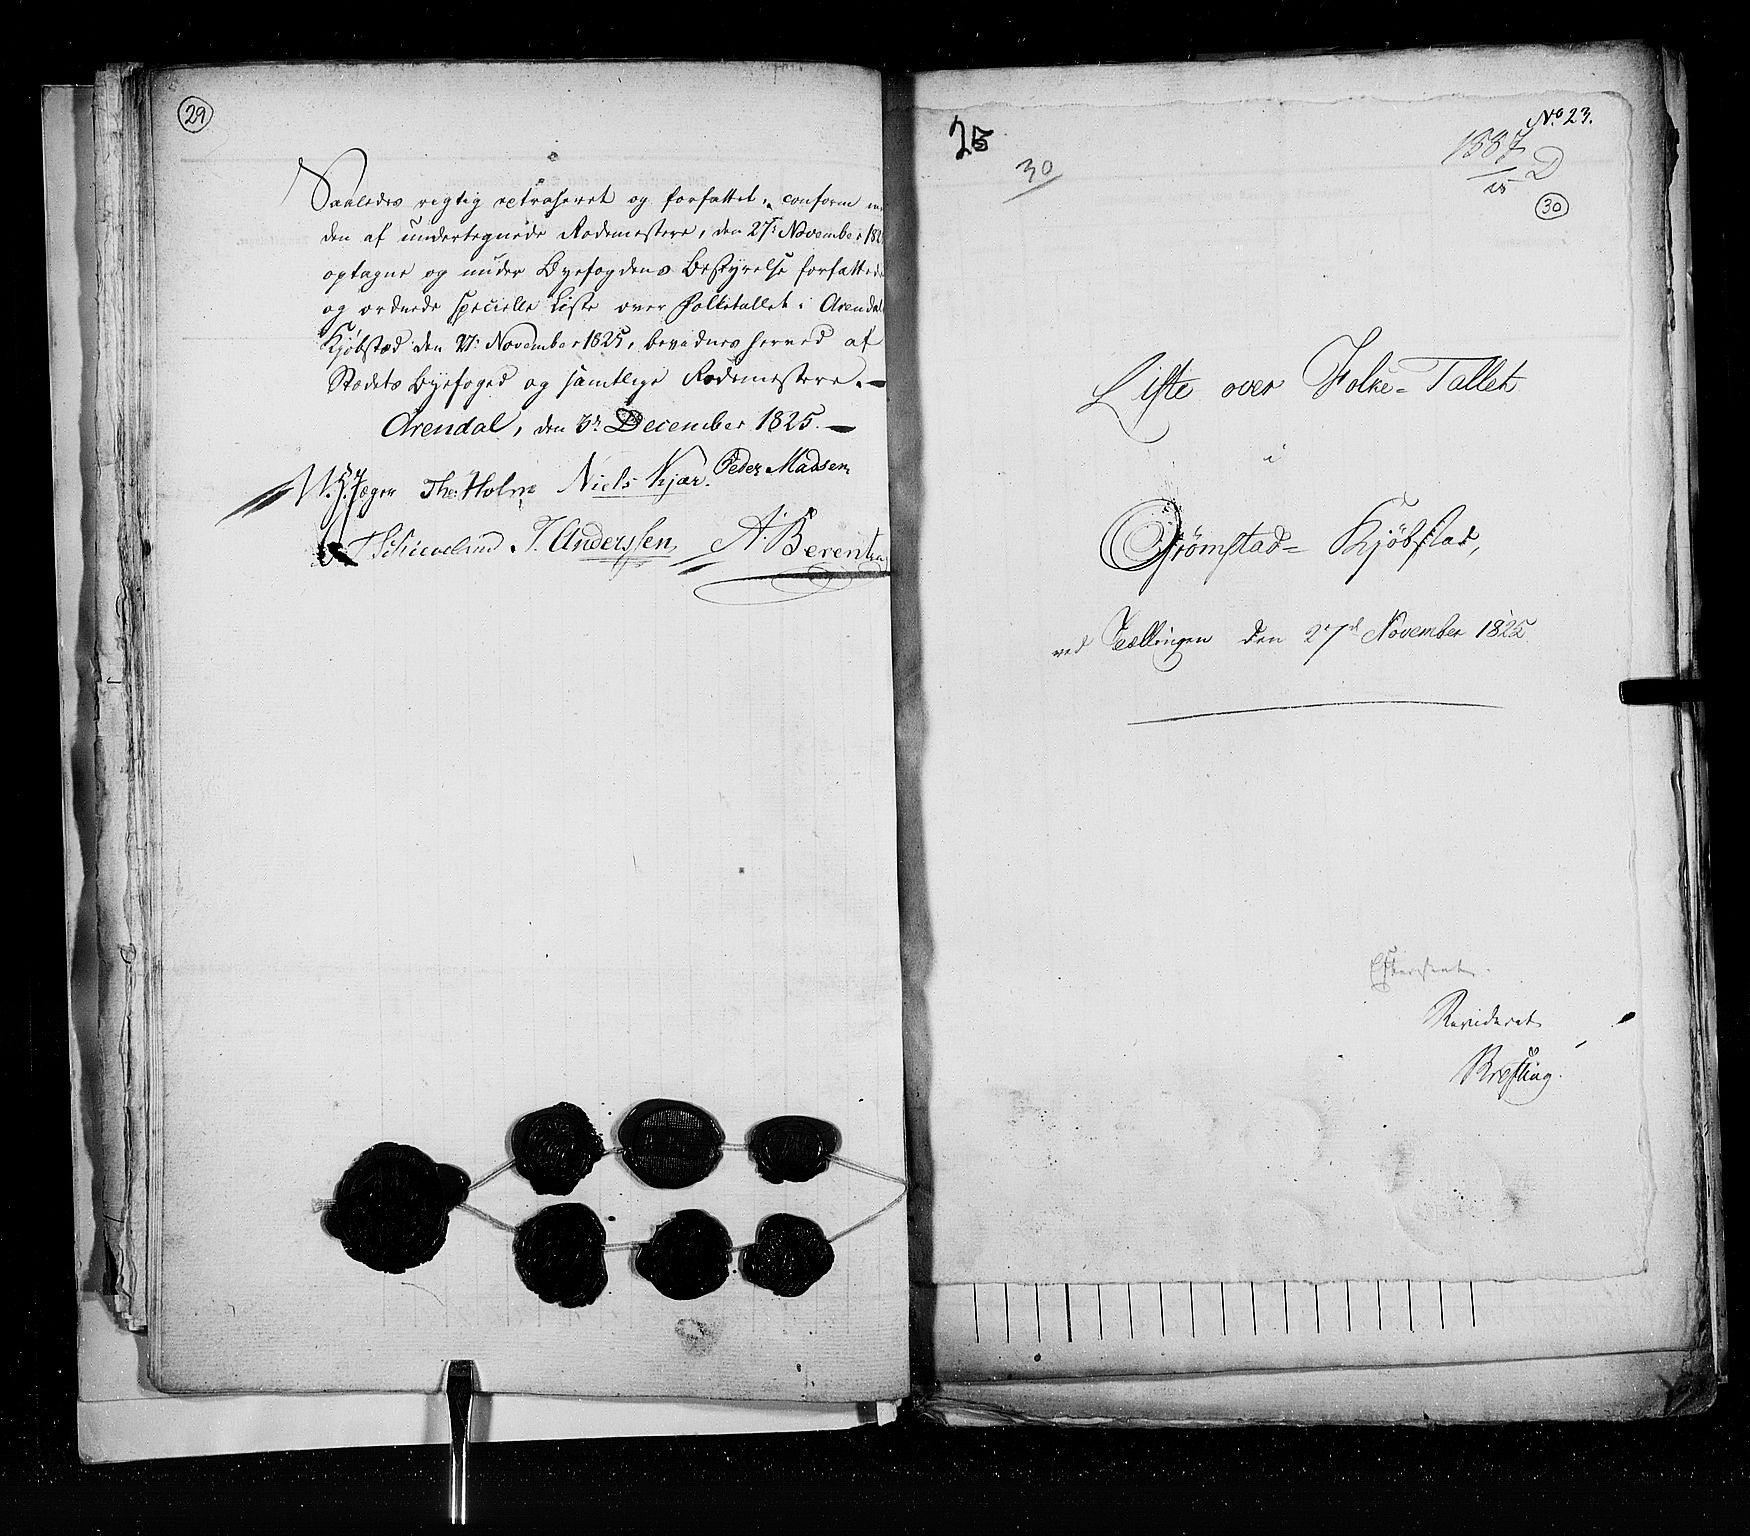 29
Saaledes rigtig extraheret og forfattet, conform
den af undertegnede Rodemestere, den 27de November 182
optagne og under Byefogdens Bestyrelse forfattede
og ordnede specielle Liste over Folketallet i Arendal
Kjøbstæd den 27. November 1825, bevidnes herved af
Stædets Byefoged og samtlige Rodemestere.
Arendal, den 3de December 1825.
Jæger Ths. Holm Niels Kjær. Peder Madsen
T. Anderssen A. Berentsen
No. 23.
25
30
1587
15 D
30
Liste over Folke-Tallet
i
Grimstad- Kjøbstad,
ved Tællingen den 27de November 1825
Revideret